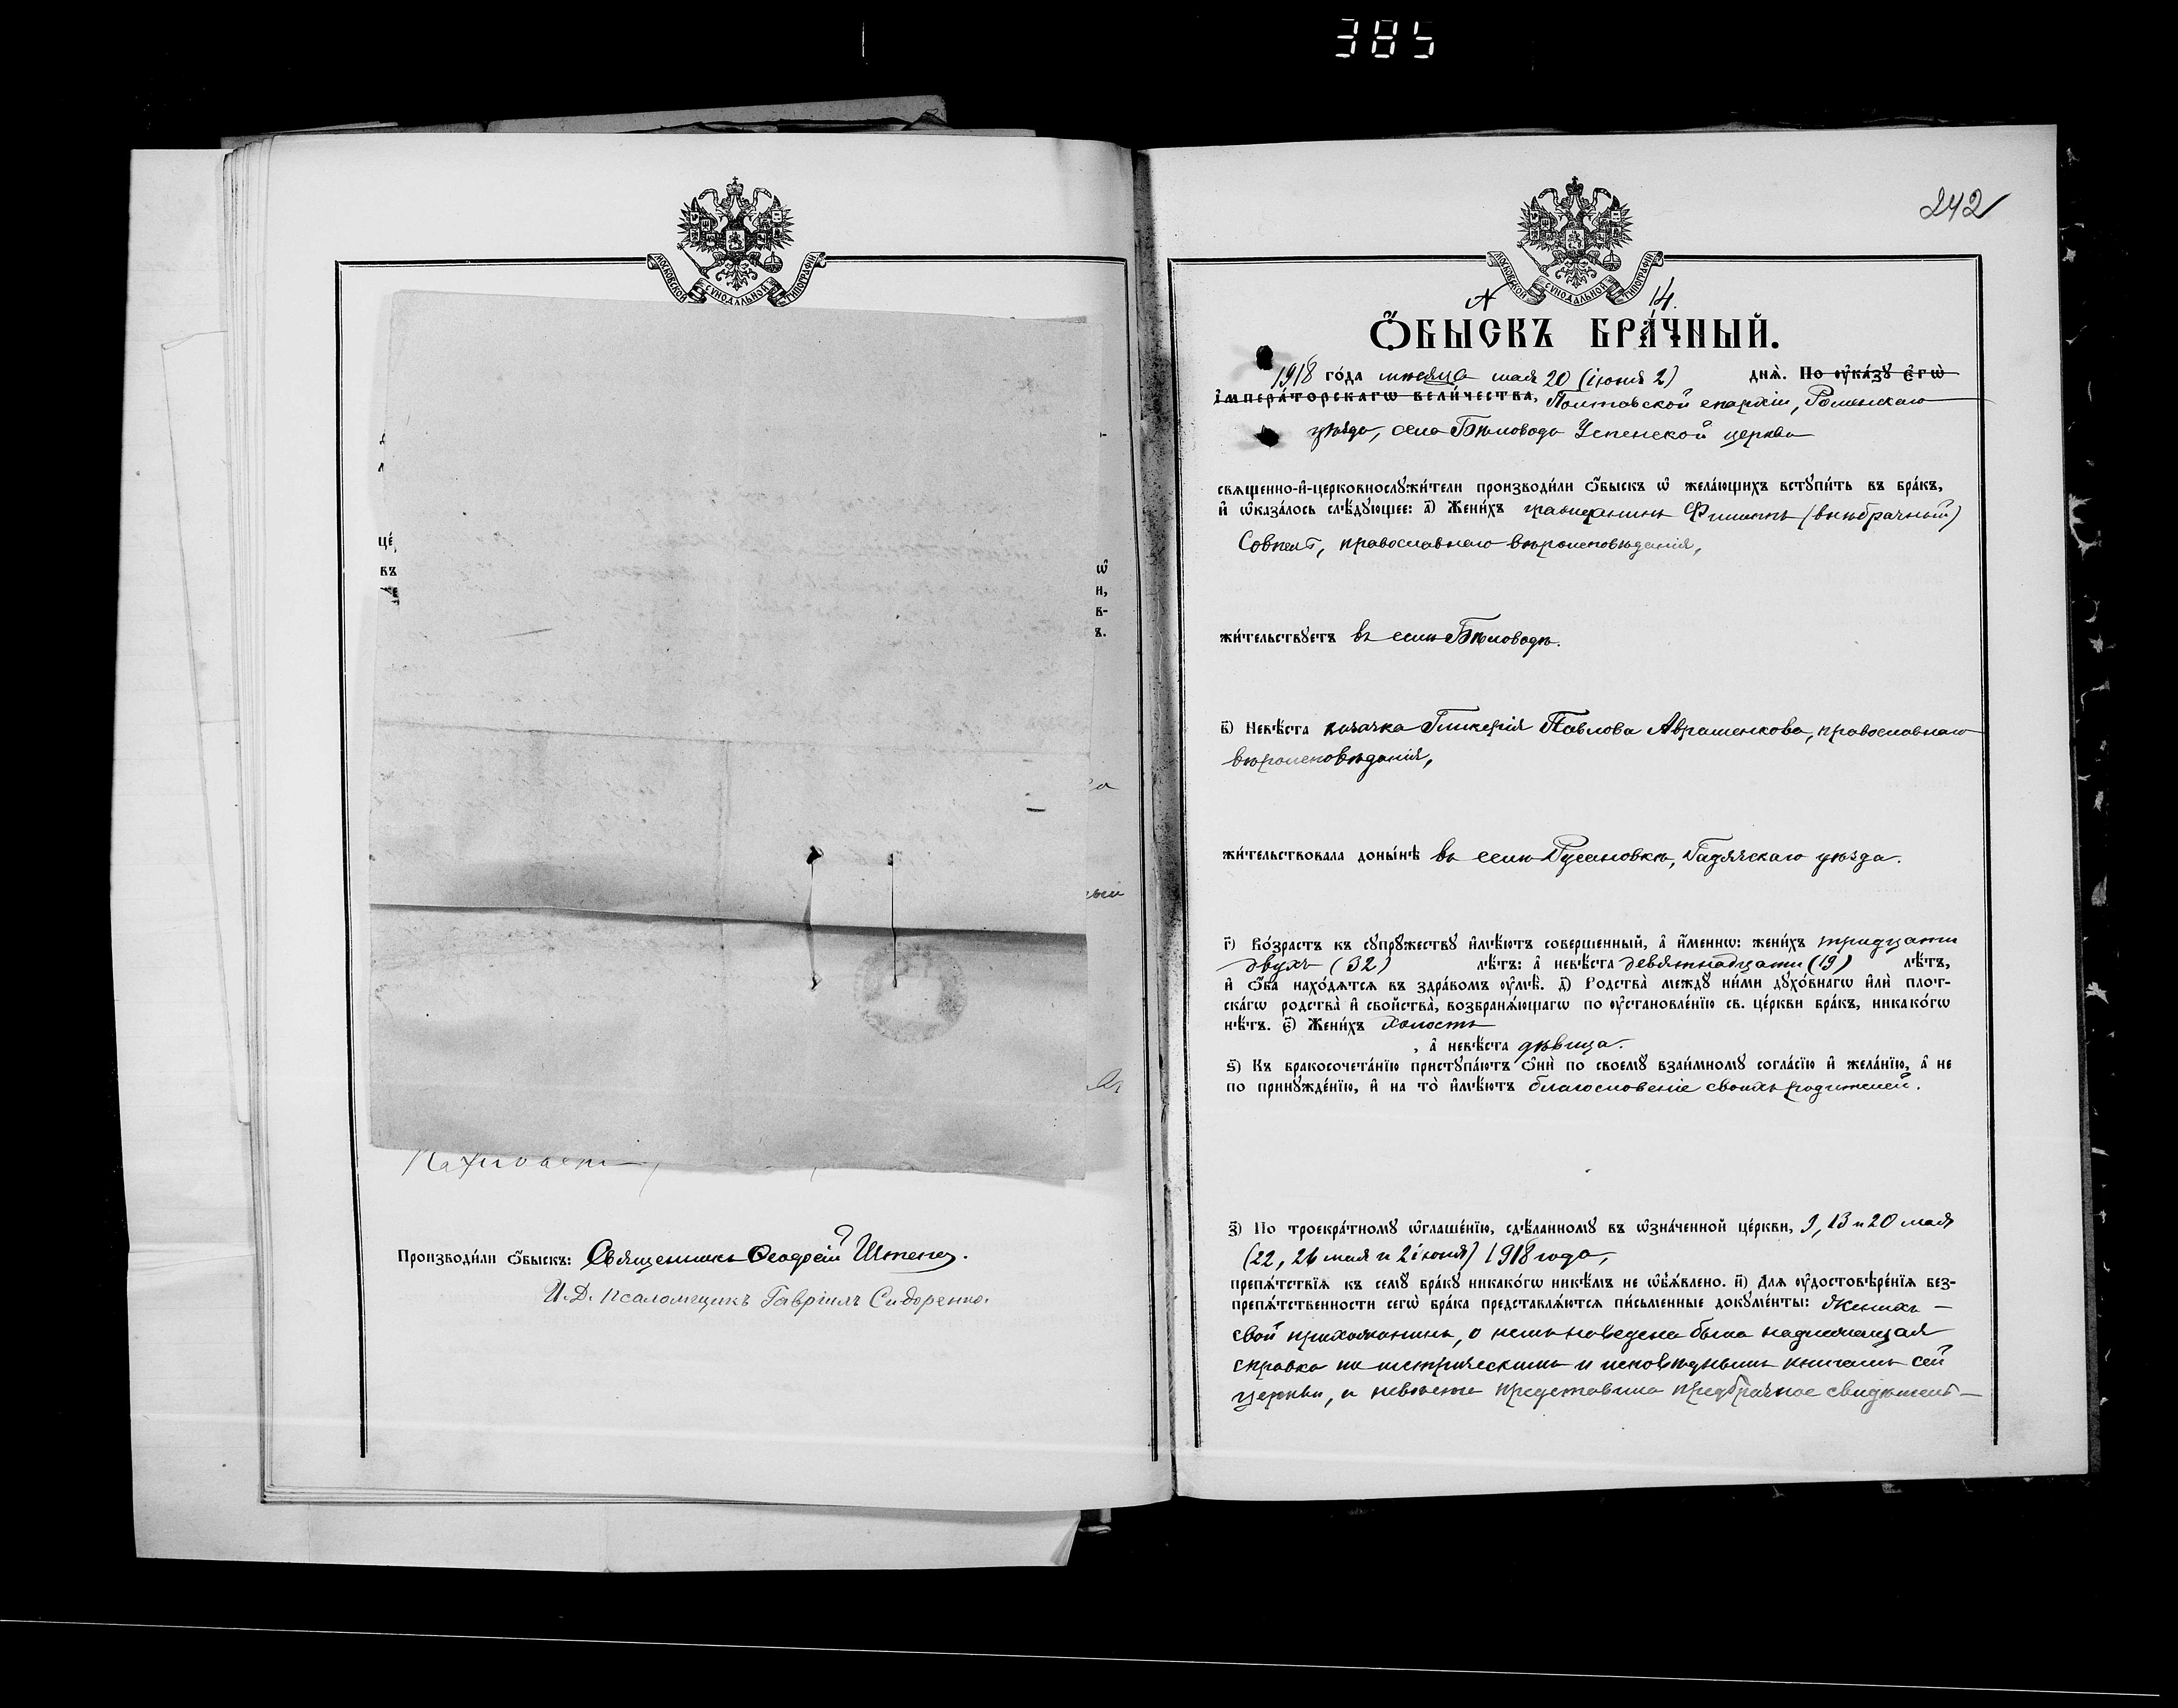 385
МОСКОВСКОЙ СУНОДАЛЬНОЙ ТИПОГРАФІИ
це,
въ
ѡ
н,
в-
ъ.
Производи́ли ѻ҆́быскъ: Священникъ Ѳеодосій
И. Д. псаломщикъ Гавріилъ Сидоренко.
242
МОСКОВСКОЙ СУНОДАЛЬНОЙ ТИПОГРАФІИ
№ 14.
Ѻ҆́БЫСКЪ БРА́ЧНЫЙ.
1918 го́да мѣсяца мая 20 (іюня 2) днѧ̀. По ᲂу҆ка́зꙋ є҆гѡ̀
і҆мпера́торскагѡ вели́чества, Полтавской епархіи, Роменскаго
уѣзда, села Бѣловода Успенской церкви
свѧщенно-и҆-церковнослꙋжи́тели производи́ли ѻ҆́быскъ ѡ҆ жела́ющихъ встꙋпи́ть въ бра́къ,
и҆ ѡ҆каза́лось слѣ́дꙋющее: а҃) Жени́хъ гражданинъ Филиппъ (внѣбрачный)
православнаго вѣроисповѣданія,
жи́тельствꙋетъ въ селѣ Бѣловодѣ.
в҃) Невѣ́ста козачка Гликерія Павлова Аврашенкова, православнаго
вѣроисповѣданія,
жи́тельствовала доны́нѣ въ селѣ Русановкѣ, Гадячскаго уѣзда.
г҃) Во́зрастъ къ сꙋпрꙋ́жествꙋ и҆мѣ́ютъ совершенный, а҆ и҆́меннѡ: жени́хъ тридцати
двухъ (32) лѣ́тъ: а҆ невѣ́ста девятнадцати (19) лѣ́тъ,
и҆ ѻ҆́ба нахо́дѧтсѧ въ здра́вомъ ᲂу҆мѣ̀. д҃) Родства̀ междꙋ̀ ни́ми дꙋхо́внагѡ и҆лѝ плот-
ска́гѡ родства̀ и҆ сво́йства̀, возбранѧ́ющагѡ по ᲂу҆становле́нїю св. це́ркви бра́къ, никако́гѡ
нѣ́тъ. є҃) Жени́хъ холостъ
, а҆ невѣ́ста дѣвица.
ѕ҃) Къ бракосочета́нїю пристꙋпа́ютъ ѻ҆нѝ по своемꙋ̀ взаи́мномꙋ согла́сїю и҆ жела́нїю, а҆ не
по принꙋжде́нїю, и҆ на то̀ и҆мѣ́ютъ благословеніе своихъ родителей.
з҃) По троекра́тномꙋ ѡ҆глаше́нїю, сдѣ́ланномꙋ въ ѡ҆зна́ченной це́ркви, 9, 13 и 20 мая
(22, 26 мая и 2 іюня) 1918 года,
препѧ́тствїѧ къ семꙋ̀ бра́кꙋ никако́гѡ никѣ́мъ не ѡ҆бъѧ́влено. и҃) Длѧ ᲂу҆достовѣре́нїѧ без-
препѧ́тственности сегѡ̀ бра́ка представлѧ́ютсѧ пи́сьменные докꙋме́нты: Женихъ –
свой прихожанинъ, о немъ наведена была надлежащая
справка по метрическимъ и исповѣднымъ книгамъ сей
церкви, а невѣста представила предбрачное свидѣтель–